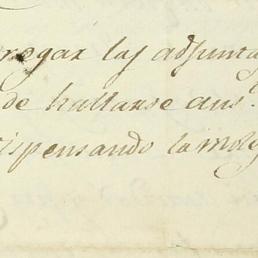 regar las adjunta
de hallarse aus.
ispensando la mole